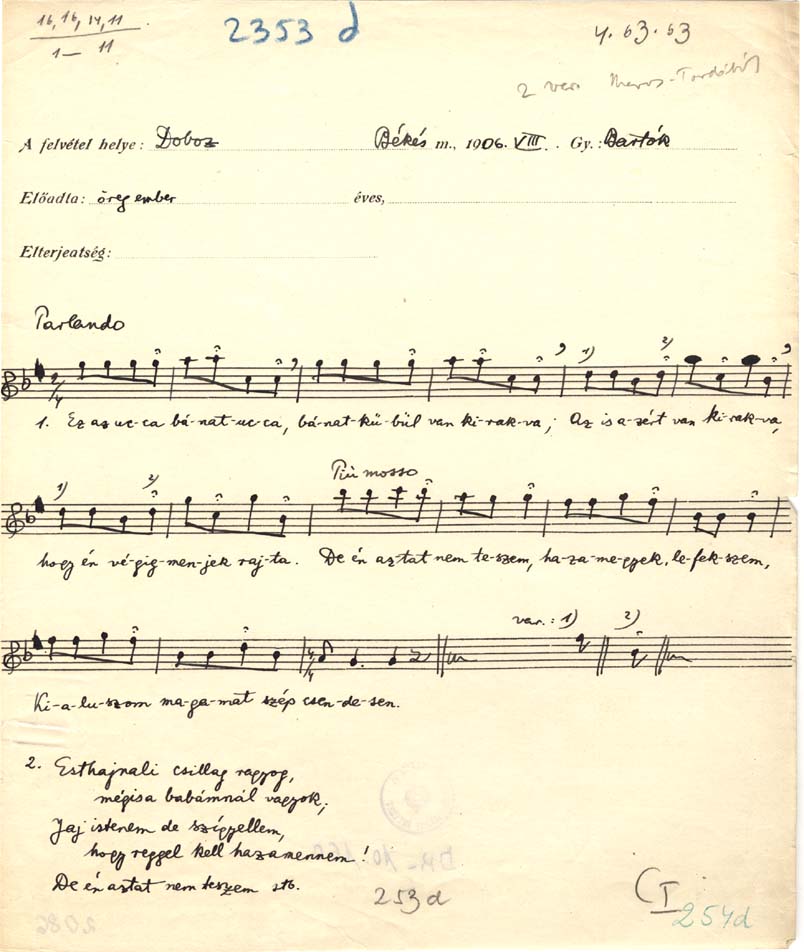 16, 16, 14, 11
1 — 11
2353 d
4. 63. 53
2 var. Maros-Tordából
A felvétel helye: Doboz Békés m., 1906. VIII. Gy.: Bartók
Előadta: öreg ember éves,
Elterjeatség:
Parlando
1) 2)
1. Ez az uc-ca bá-nat-uc-ca, bá-nat-kü-bül van ki-rak-va; Az is a-zért van ki-rak-va,
1) 2) Più mosso
hogy én vé-gig-men-jek raj-ta. De én aztat nem te-szem, ha-za-me-gyek, le-fek-szem,
var.: 1) 2)
Ki-a-lu-szom ma-ga-mat szép csen-de-sen.
2. Esthajnali csillag ragyog,
mégis a babámnál vagyok;
Jaj istenem de szígyellem,
hogy reggel kell hazamennem!
De én aztat nem teszem stb.
253 d
C I
254d